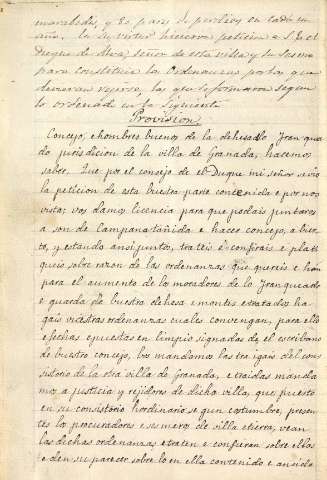 maravedis, y 80 pares de perdices en cada un
año. En su virtud hicieron peticion a S. E. el
Duque de Alva, señor de esta villa y su tierra
para constituir la Ordenanzas por la que
devieran rejirse, las que se formaron segun
lo ordenado en la siguiente
Provision
Concejo, e hombres buenos de la dehesa de lo Fran que a
do jurisdicion de la villa de Granada, hacemos
saber. Que por el consejo de el Duque mi señor se vio
la peticion de esta buestra parte contenida e por nos
vista: vos damos licencia para que podais juntaros
a son de campana tañida e hacer concejo, a bier
to, y estando ansi junto, trateis e confirais e plati
queis sobre razon de las ordenanzas que quereis e hon
para el aumento de los moradores de lo Franqueado
e guarda de buestra dehesa e montes e tratados ha
gais vuestras ordenanzas cuales convengan, para ello
e fechas e puestas en limpio signadas de el escribano
de buestro concejo, los mandamo las traigais del con
sistorio de la otra villa de Granada, e traidas manda
mo a justicia y rejidores de dicha villa, que puesto
en su consistorio hordinario segun costumbre, presen
tes lo procuradores e sesmero de villa e tierra, vean
las dichas ordenanzas e traten e confieran sobre ellos
e den su parecer sobre lo en ella contenido e ansido